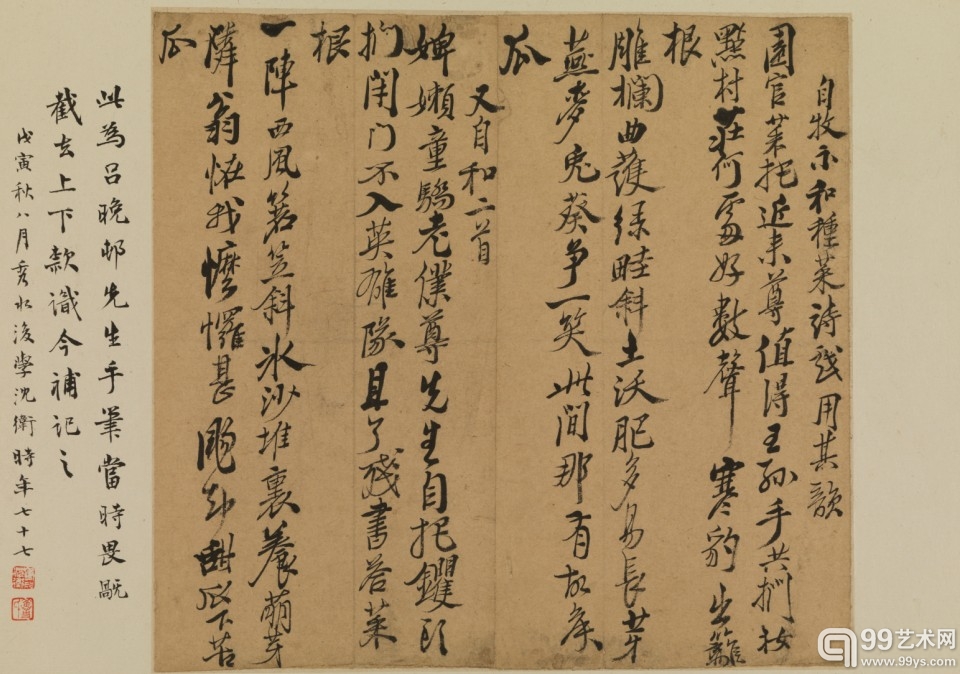 自牧示和種菜詩戲用其韻
園官菜把近来尊值得王孫手共捫林
點村莊何處好數聲寒豹出籬
根
雕欄曲護綠畦斜土沃肥多易長芽
燕麥兔葵争一笑此間那有故侯
瓜
又自和二首
婢嬾童驕老僕尊先生自把钁頭
捫閉门不入英雄隊且了殘書荅菜
根
一陣西風箬笠斜氷沙堆裏養萌芽
隣翁怪我懡㦬甚
瓜
此為吕晚邨先生手筆當時畏禍
截去上下款識今補記之
戊寅秋八月秀水後學沈衛時年七十七
99艺术网
www.99ys.com